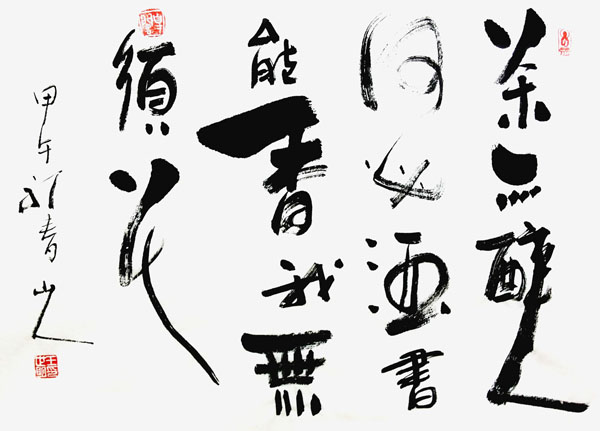 茶亦醉人
何必酒書
能香我無
須花
甲午 山人